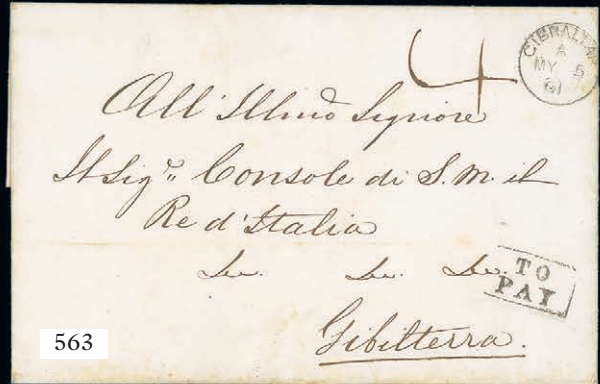 4
GIBRALTAR
A
MY 5
61
All' Illmo Signore
Il Sigr. Console di S. M. il
Re d'Italia
TO
PAY
Gibilterra.
563